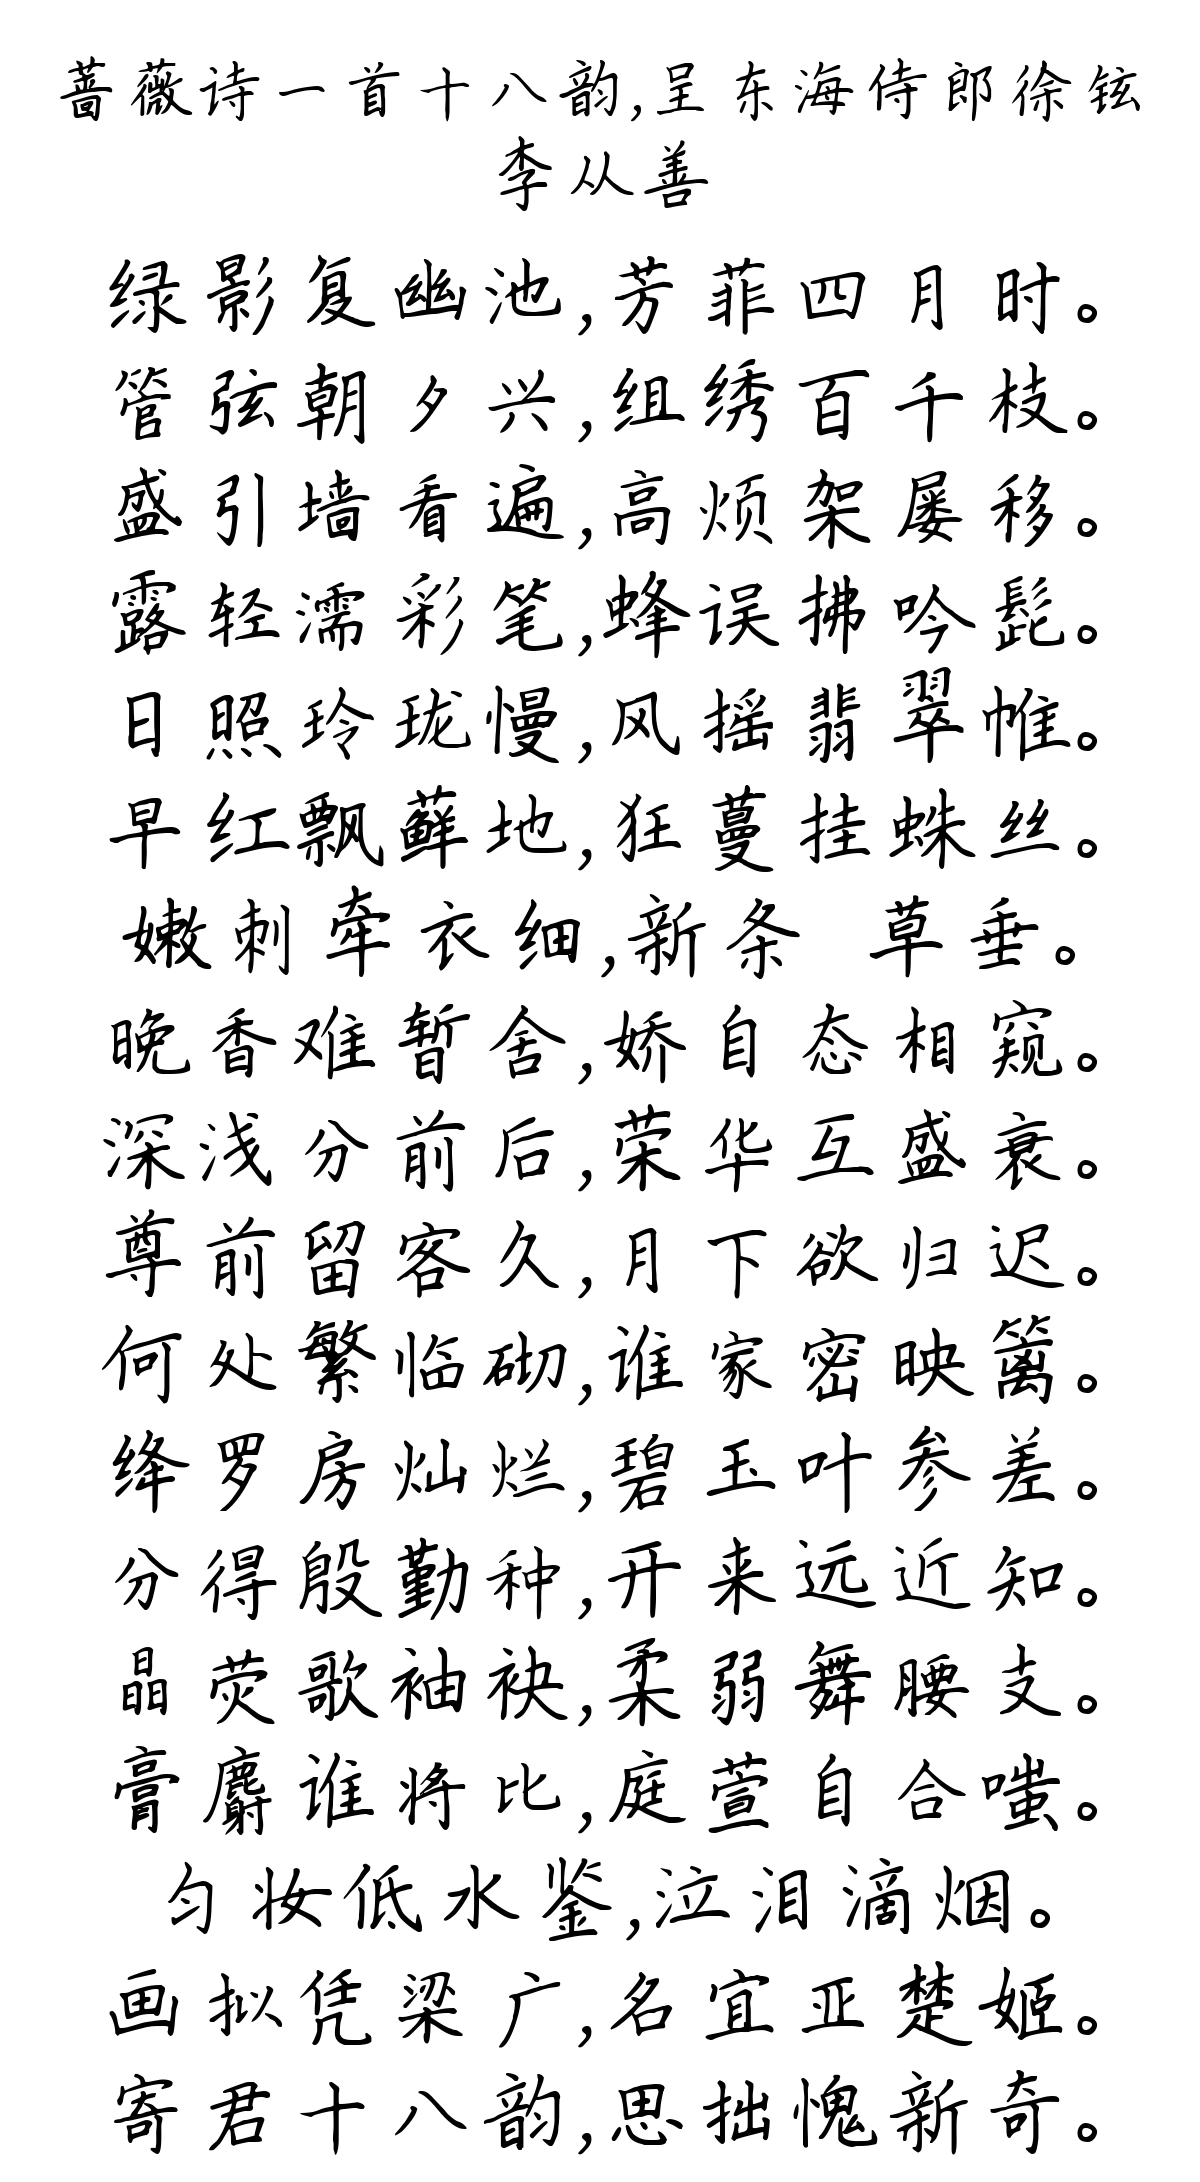 蔷薇诗一首十八韵,呈东海侍郎徐铉
李从善
绿影复幽池,芳菲四月时。
管弦朝夕兴,组绣百千枝。
盛引墙看遍,高烦架屡移。
露轻濡彩笔,蜂误拂吟髭。
日照玲珑慢,风摇翡翠帷。
早红飘藓地,狂蔓挂蛛丝。
嫩刺牵衣细,新条 草垂。
晚香难暂舍,娇自态相窥。
深浅分前后,荣华互盛衰。
尊前留客久,月下欲归迟。
何处繁临砌,谁家密映篱。
绛罗房灿烂,碧玉叶参差。
分得殷勤种,开来远近知。
晶荧歌袖袂,柔弱舞腰支。
膏麝谁将比,庭萱自合嗤。
匀妆低水鉴,泣泪滴烟。
画拟凭梁广,名宜亚楚姬。
寄君十八韵,思拙愧新奇。